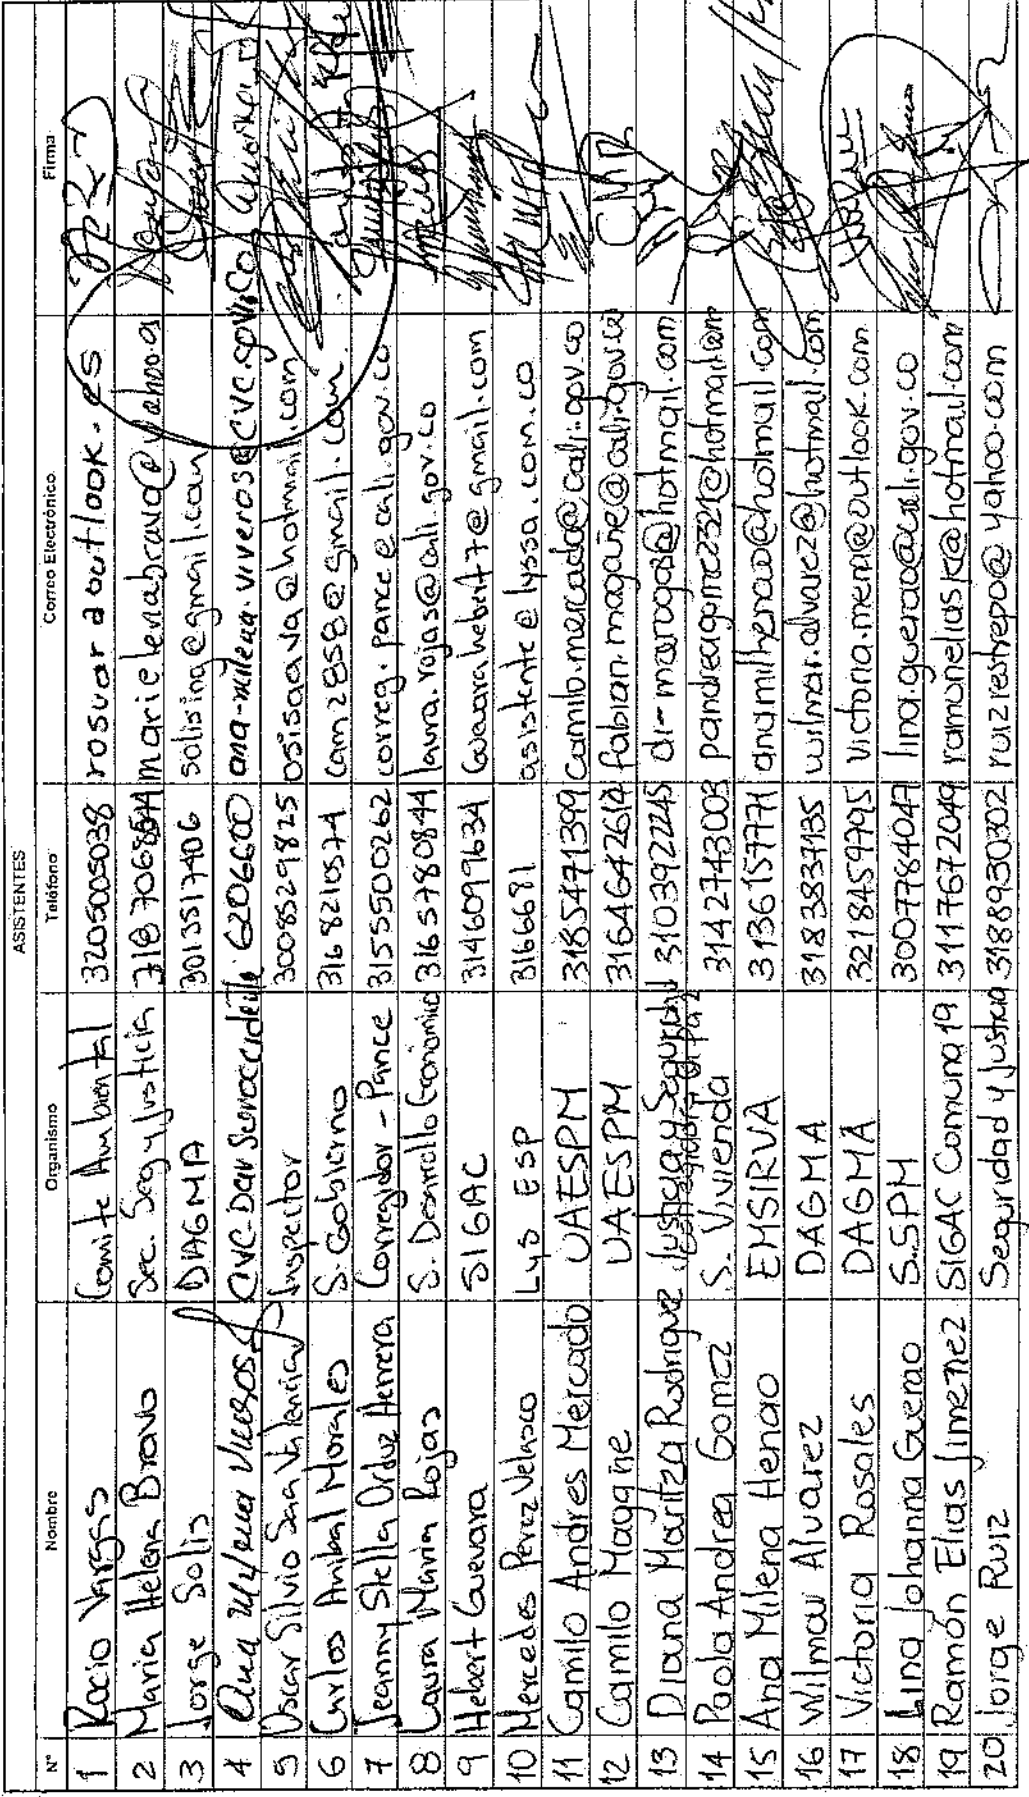 ASISTENTES
N° Nombre Organismo Teléfono Correo Electrónico Firma
1 Rocio Vargas Comite Ambiental 3205005038 rosvar2outlook.es
2 Maria Helena Bravo Sec. Seg y Justicia marielenabravo@yahoo.es
3 Jorge Solis DAGMA 3013517406 solising@gmail.com
4 Ana Milena Viveros CVC-Dar Suroccidente 6206600 ana-milena.viveros@cvc.gov.co
5 Oscar Silvio Saa Valencia Inspector 3008529825 osisaava@hotmail.com
6 Carlos Anibal Morales S. Gobierno 3168210574 Cam2858@gmail.com.
7 Jeanny Stella Orduz Herrera Corregidor - Pance 3155500262 correg.pance@cali.gov.co
8 Laura Maria Rojas S. Desarrollo Economico 3165780844 laura.rojas@cali.gov.co
9 Hebert Guevara SIGAC 3146099634 Guevarahebert7@gmail.com
10 Mercedes Perez Velasco Lys ESP 316681 asistente@lyssa.com.co
11 Camilo Andres Mercado UAESPM 3185471399 Camilo.mercado@cali.gov.co
12 Camilo Magañe UAESPM 3164642614 fabian.magañe@cali.gov.co CMR
13 Diana Maritza Rodriguez Justicia y Seguridad 3103922245 di-marogo8@hotmail.com
14 Paola Andrea Gomez S. Vivienda 3142743003 pandreagomez321@hotmail.com
15 Ana Milena Henao EMSIRVA 3136157771 anamilhenao@hotmail.com
16 Wilmar Alvarez DAGMA 3183837135 wilmar.alvarez@hotmail.com
17 Victoria Rosales DAGMA 3218459795 victoria.mera@outlook.com
18 Lina Johanna Guerao S.SPM 3007784047 lina.guerao@cali.gov.co
19 Ramón Elias Jimenez SIGAC Comuna 19 3117672049 ramoneliasjk@hotmail.com
20 Jorge Ruiz Seguridad y Justicia 3188930302 ruizrestrepo@yahoo.com